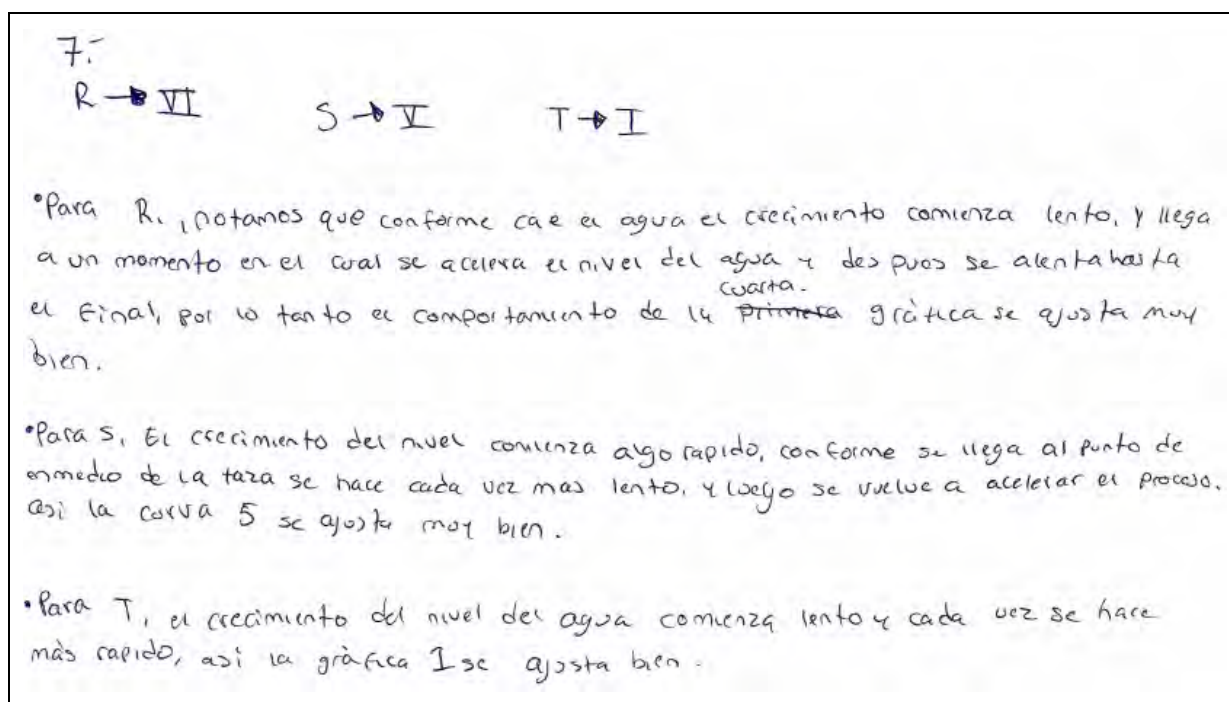 7.-
R → VI S → V T → I
•Para R., notamos que conforme cae el agua el crecimiento comienza lento, y llega
a un momento en el cual se acelera el nivel del agua y despues se alenta hasta
cuarta.
el final, por lo tanto el comportamiento de la primera gràfica se ajusta muy
bien.
•Para S, El crecimiento del nivel comienza algo rapido, conforme se llega al punto de
enmedio de la taza se hace cada vez mas lento, y luego se vuelve a acelerar el proceso.
asi la curva 5 se ajusta muy bien.
•Para T, el crecimiento del nivel del agua comienza lento y cada vez se hace
màs rapido, asi la gràfica I se ajusta bien.